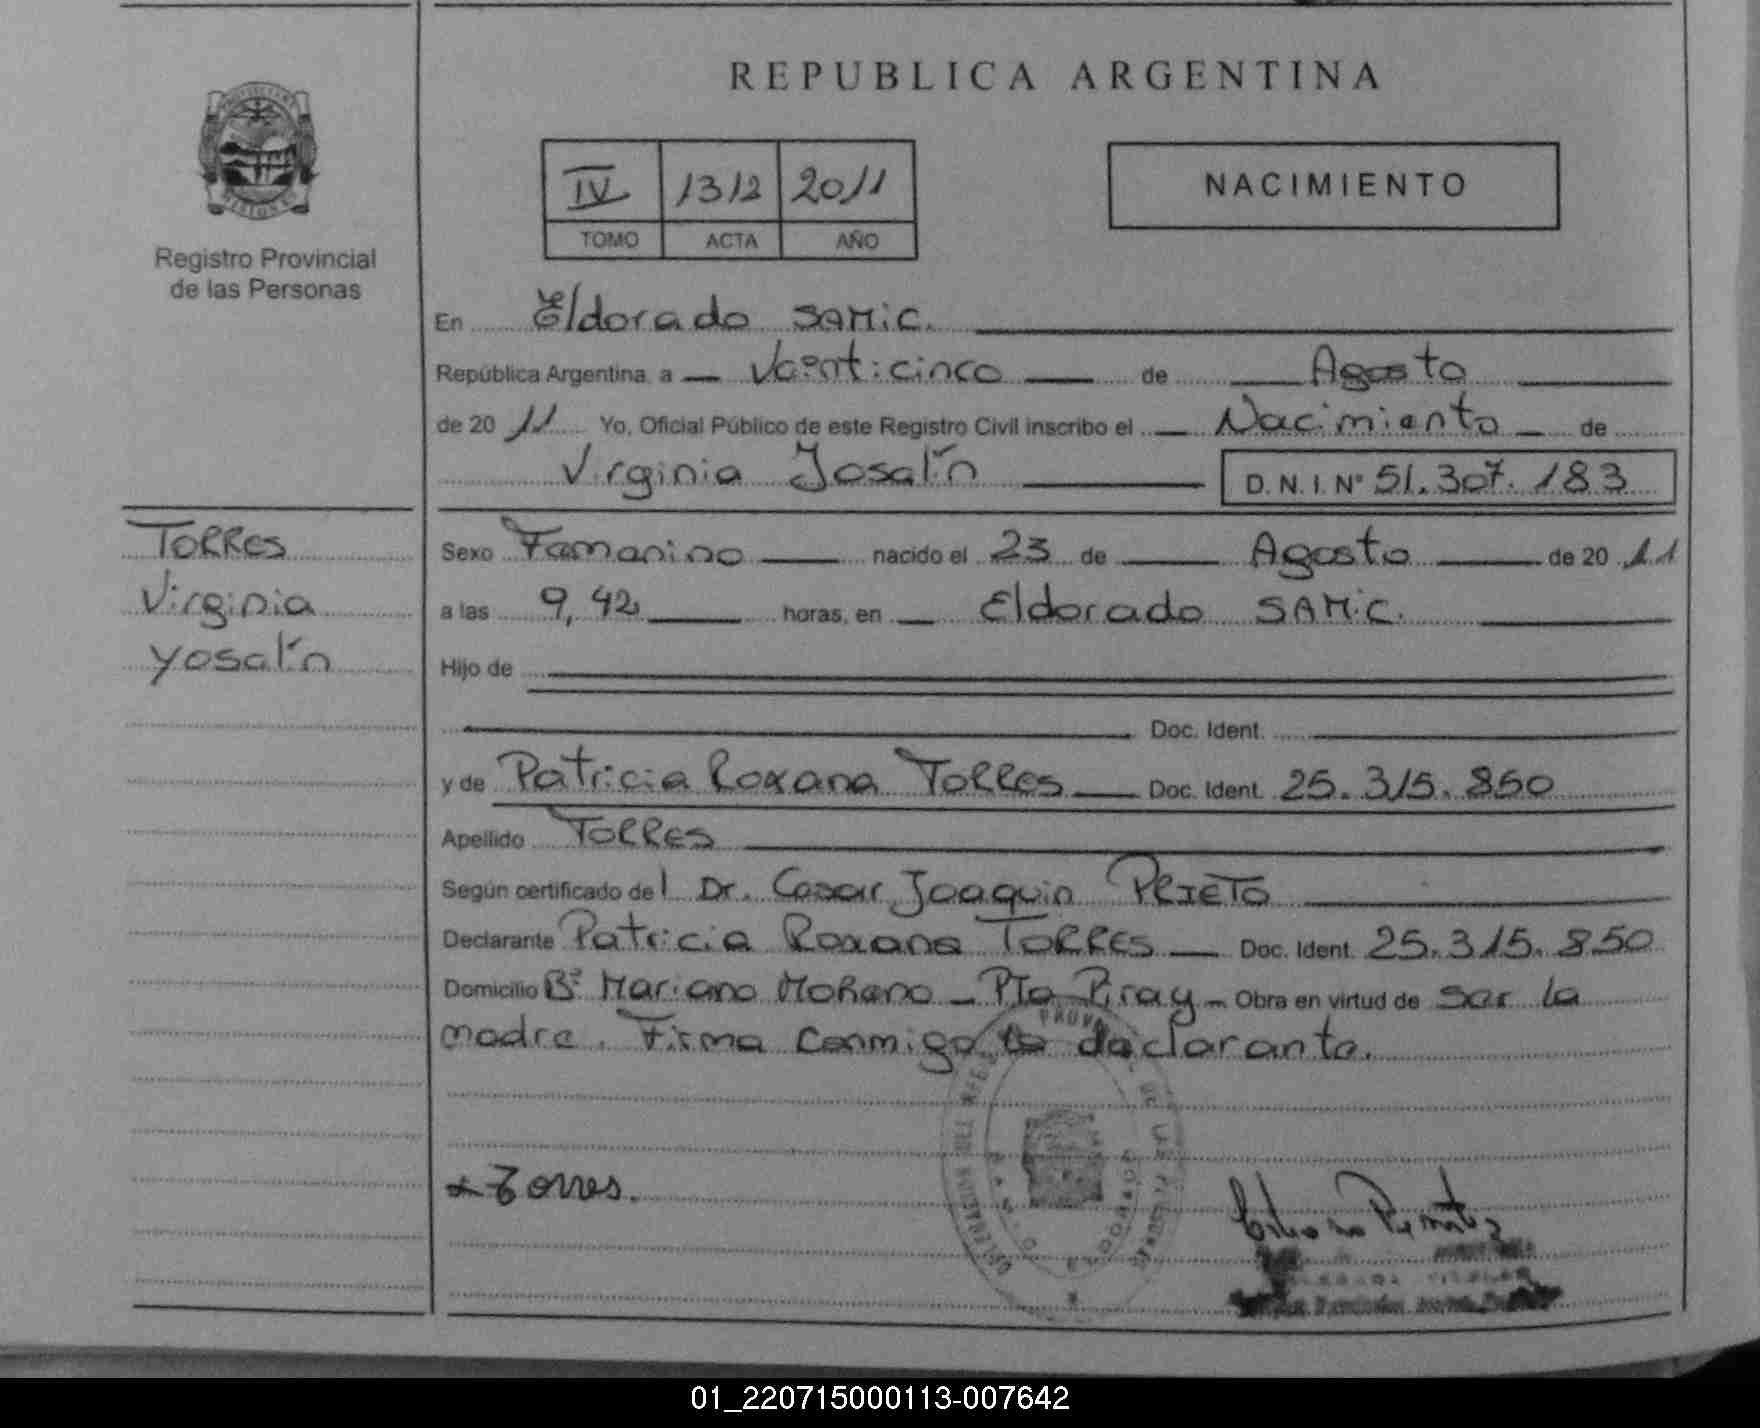 REPUBLICA ARGENTINA
IV 1312 2011
TOMO ACTA AÑO
NACIMIENTO
Registro Provincial
de las Personas
En Eldorado SAMIC.
República Argentina, a Veinticinco de Agosto
de 2011 Yo, Oficial Público de este Registro Civil inscribo el Nacimiento de
Virginia Yoselín D.N.I. Nº 51.307.183
TORRES
Virginia
Yoselín
Sexo Femenino nacido el 23 de Agosto de 2011
a las 9,42 horas, en Eldorado SAMIC.
Hijo de
Doc. Ident.
y de Patricia Roxana TORRES Doc. Ident. 25.315.850
Apellido TORRES
Según certificado del Dr. Cesar Joaquin PRIETO
Declarante Patricia Roxana TORRES Doc. Ident. 25.315.850
Domicilio Bº Mariano Moreno - Pto Piray - Obra en virtud de ser la
madre. Firma conmigo la declarante.
Torres.
01_220715000113-007642